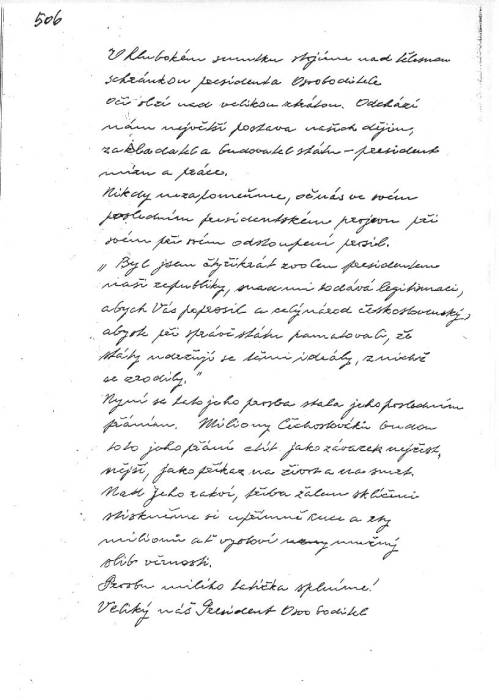 506
V hlubokém smutku stojíme nad tělesnou
schránkou presidenta Osvoboditele
Oči slzí nad velikou ztrátou. Odchází
nám největší postava našich dějin,
zakladatel a budovatel státu – president
míru a práce.
Nikdy nezapomeňme, oč nás ve svém
posledním presidentském projevu při
svém při svém odstoupení prosil.
„Byl jsem čtyřikrát zvolen presidentem
naší republiky, snad mi to dává legitimaci,
abych Vás poprosil a celý národ československý,
abyste při správě státu pamatovali, že
státy udržují se těmi ideály, z nichž
se zrodily."
Nyní se tato jeho prosba stala jeho posledním
přáním. Miliony Čechoslováků budou
toto jeho přání ctít jako závazek nejčist,
nější, jako příkaz na život a na smrt.
Nad jeho rakví, třeba žalem sklíčeni
stiskněme si upřímně ruce a rty
milionů ať vysloví mužný
slib věrnosti.
Prosbu milého tatíčka splníme!
Veliký náš President Osvoboditel